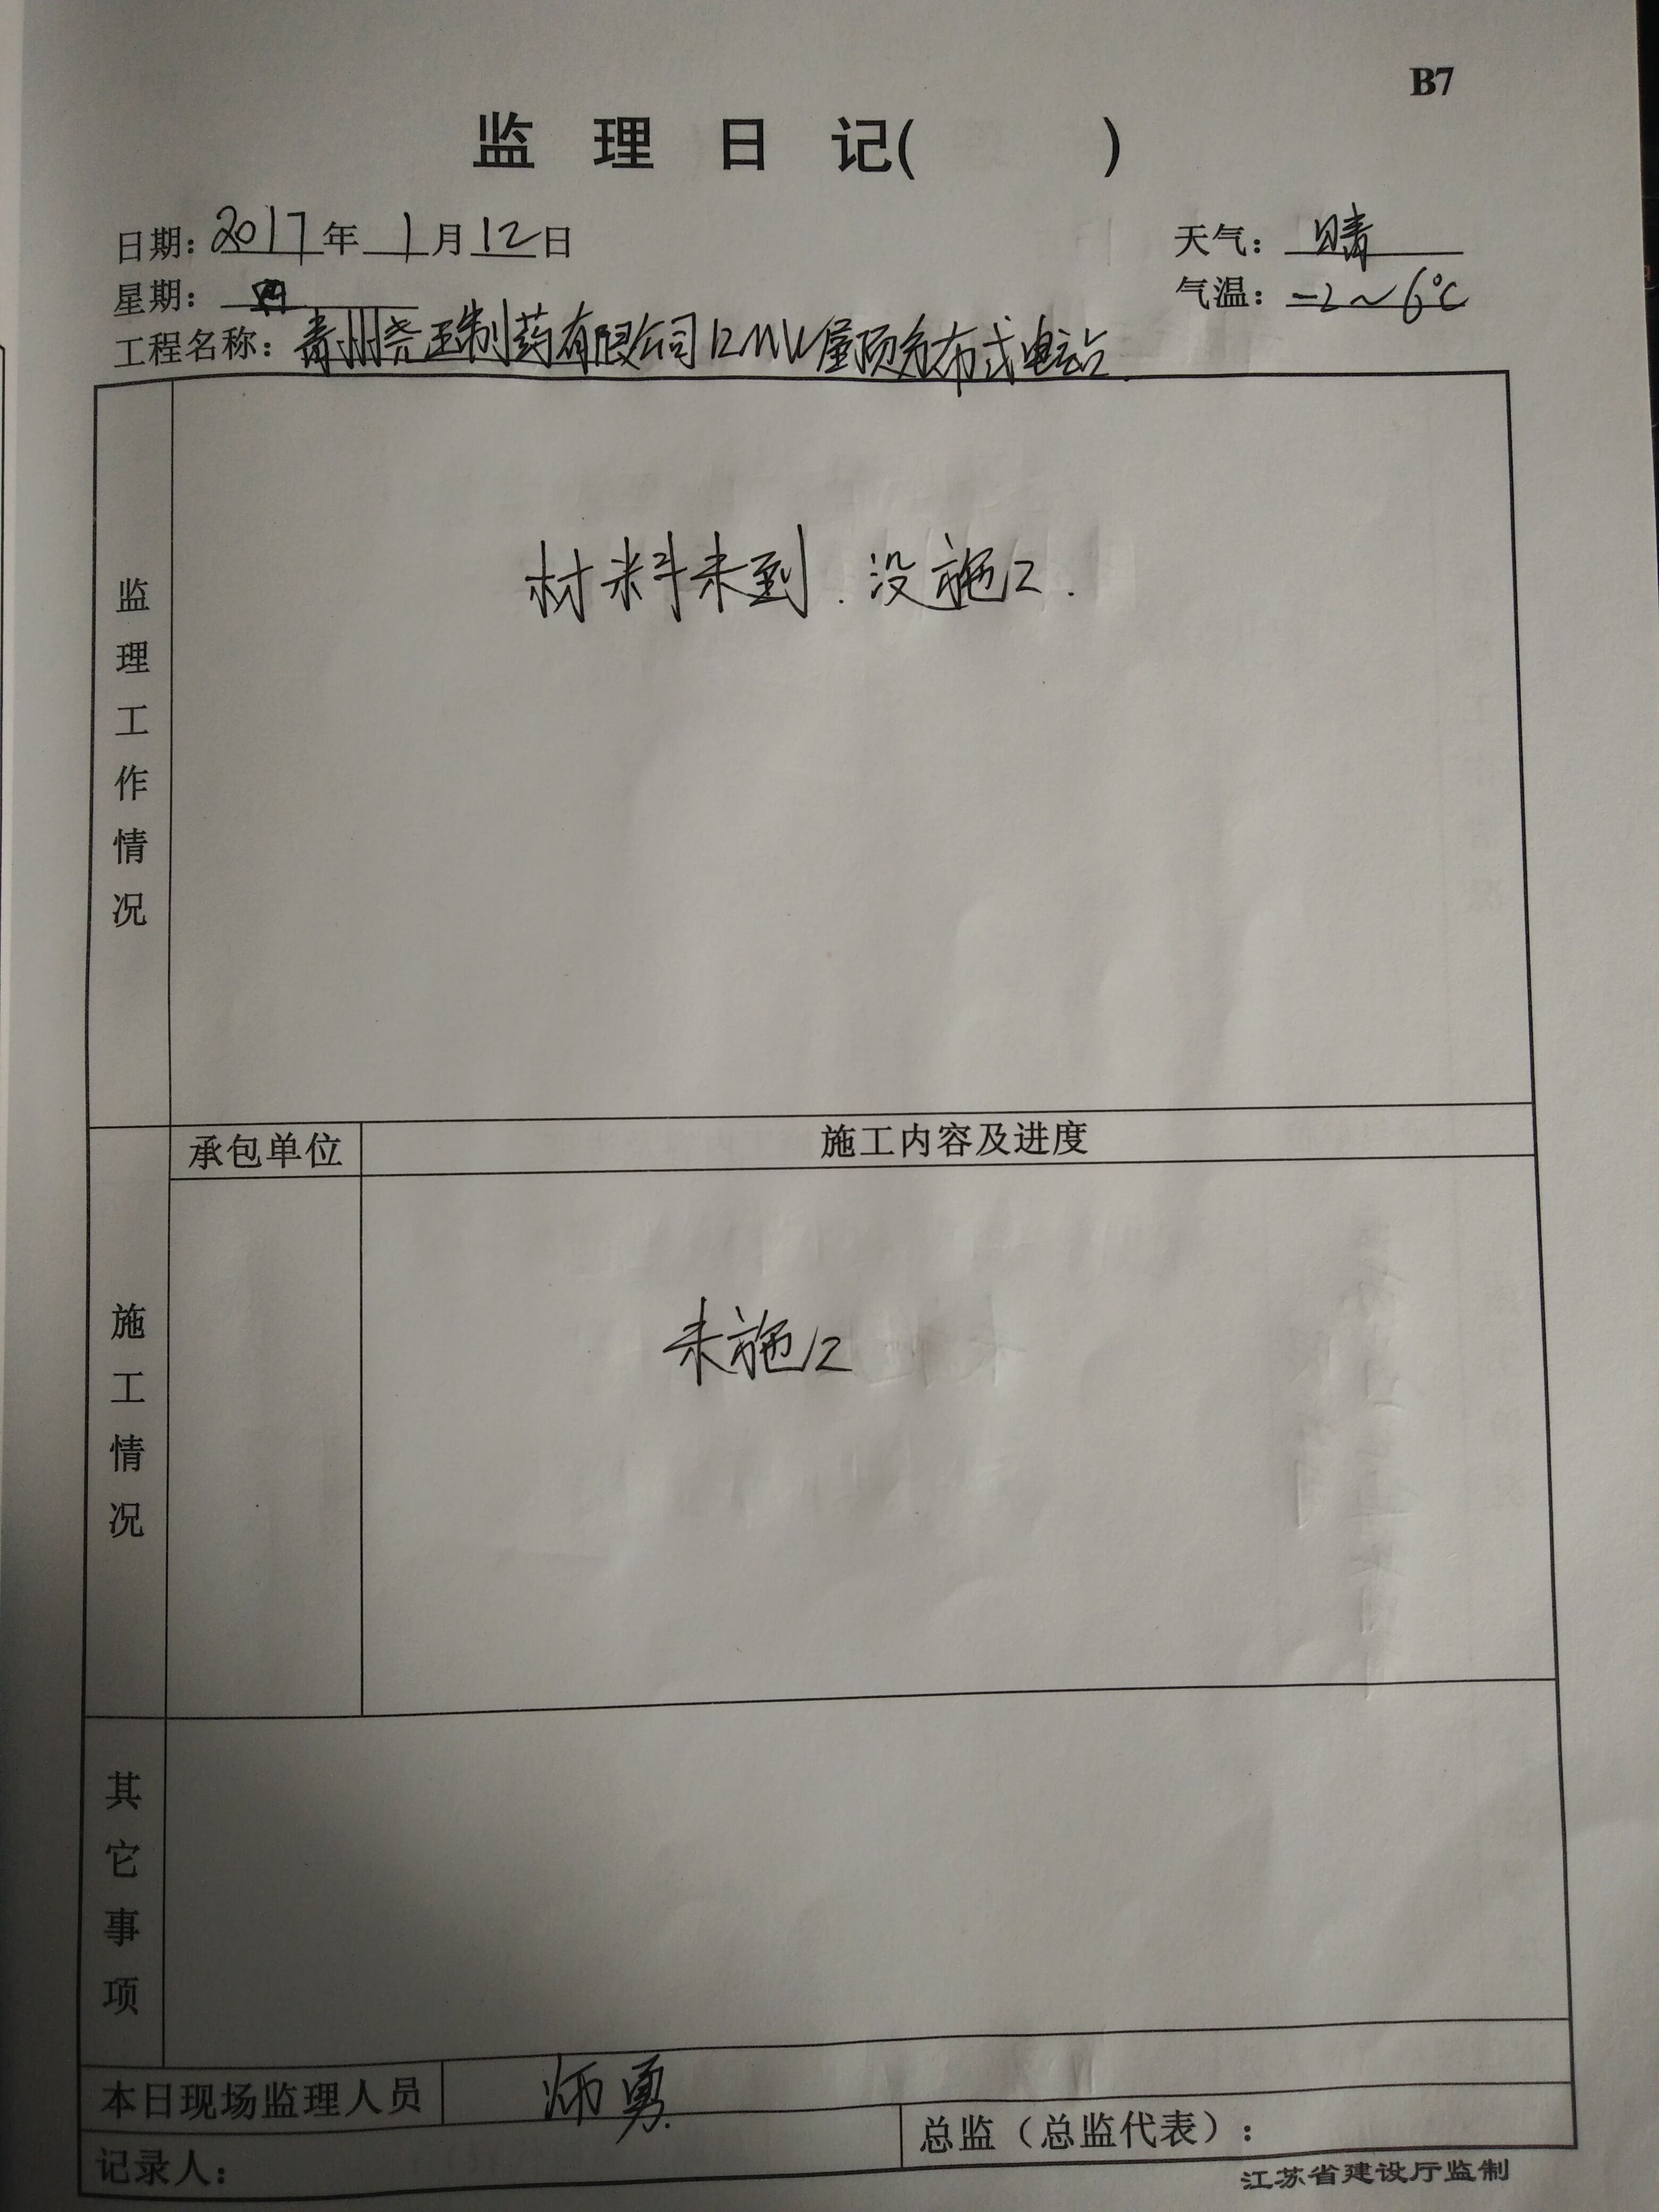 B7
监理日记(　　)
日期：2017年1月12日
天气：晴
星期：四
气温：-2～6℃
工程名称：青州尧王制药有限公司12MW屋顶分布式电站
监理工作情况
材料未到．没施工．
承包单位
施工内容及进度
施工情况
未施工
其它事项
本日现场监理人员
师勇
总监（总监代表）：
记录人：
江苏省建设厅监制